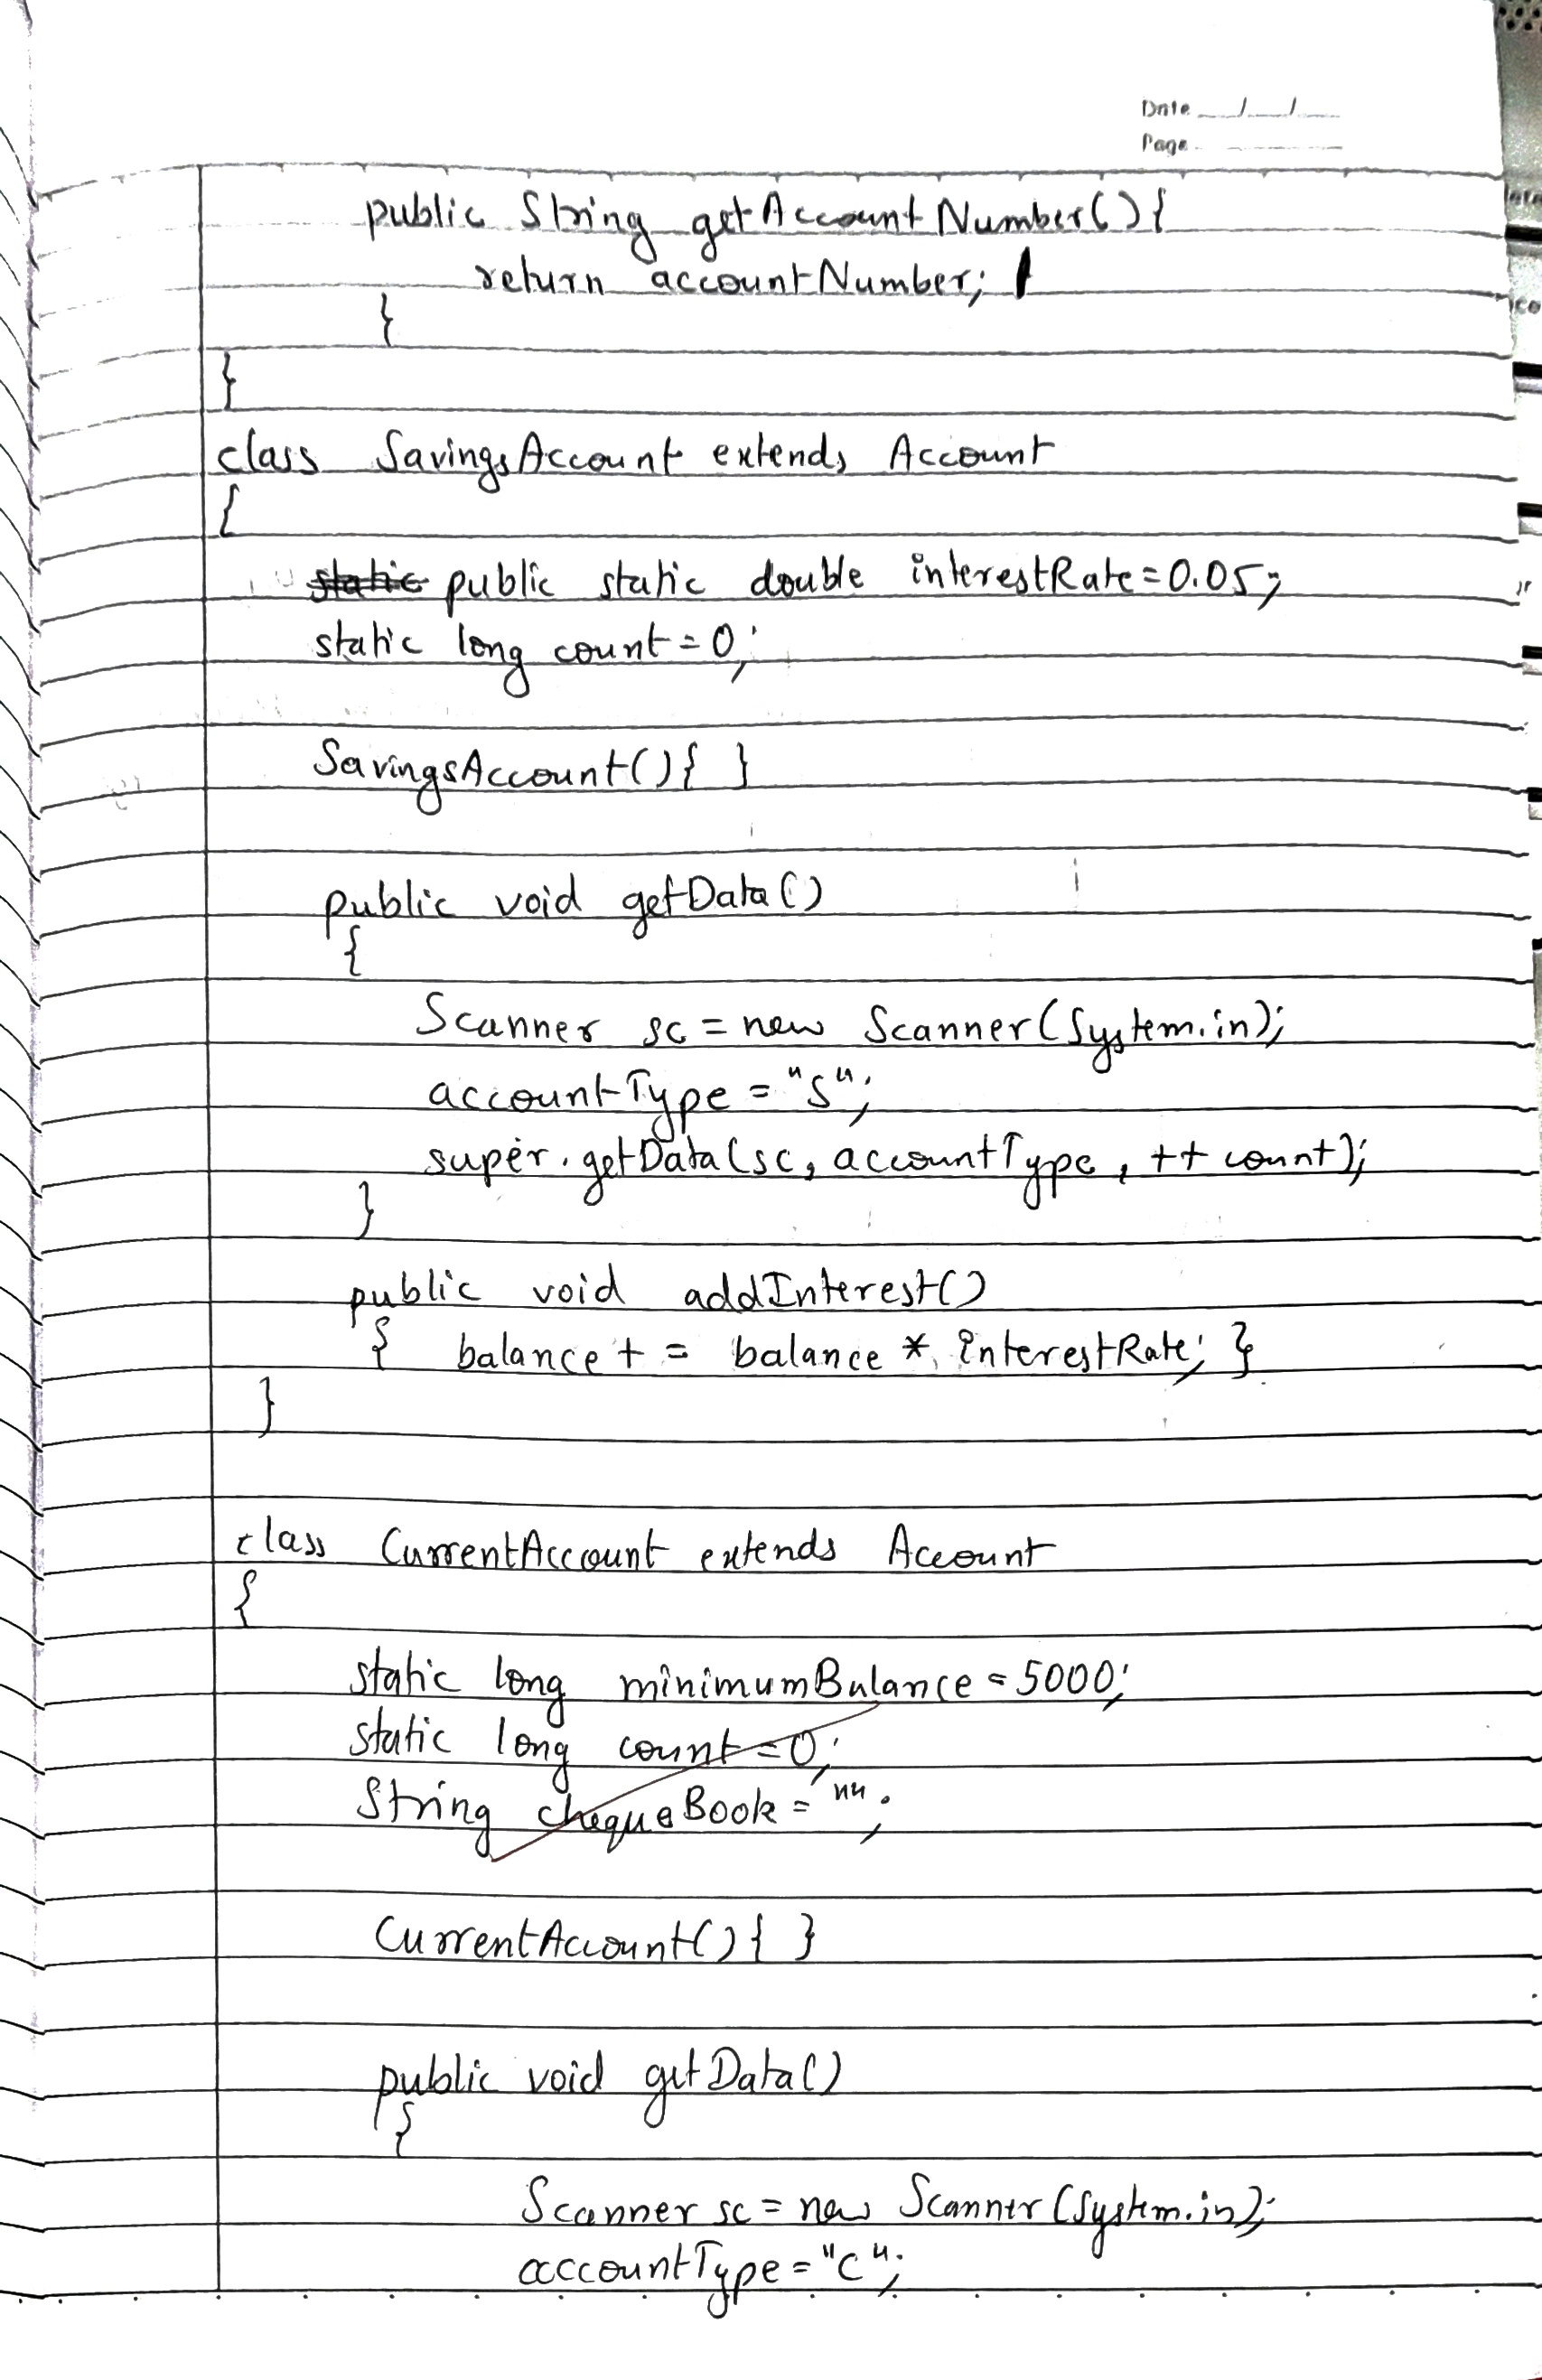 Date __/__/__
Page
public String getAccountNumber(){
return accountNumber;
}
}
class SavingsAccount extends Account
{
static public static double interestRate=0.05;
static long count=0;
SavingsAccount(){ }
public void getData()
{
Scanner sc = new Scanner(System.in);
accountType = "S";
super.getData(sc, accountType, ++count);
}
public void addInterest()
{ balance + = balance * interestRate; }
}
class CurrentAccount extends Account
{
static long minimumBalance = 5000;
static long count=0;
String chequeBook = "";
CurrentAccount(){ }
public void getData()
{
Scanner sc = new Scanner(System.in);
accountType = "C";